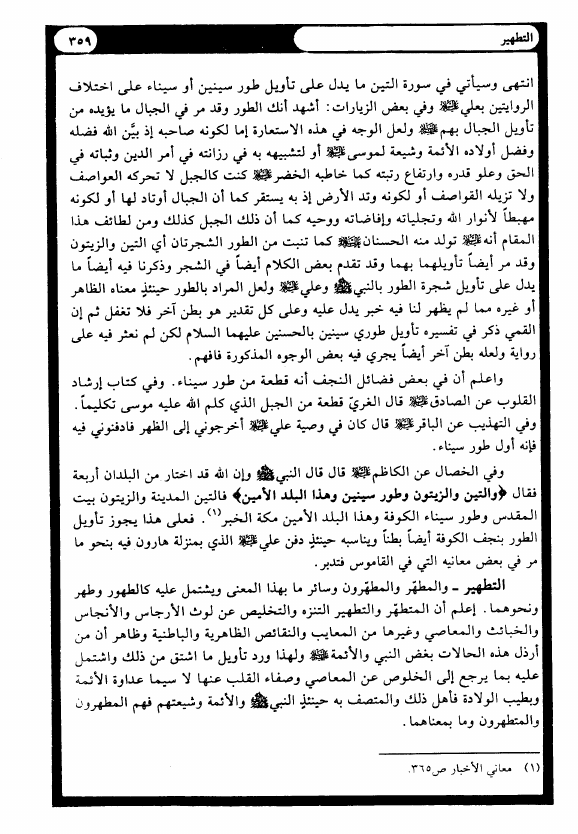 التطهير
٣٥٩
انتهى وسيأتي في سورة التين ما يدل على تأويل طور سينين أو سيناء على اختلاف
الروايتين بعلي ﷺ وفي بعض الزيارات: أشهد أنك الطور وقد مر في الجبال ما يؤيده من
تأويل الجبال بهم ﷺ ولعل الوجه في هذه الاستعارة إما لكونه صاحبه إذ بيَّن الله فضله
وفضل أولاده الأئمة وشيعة لموسى ﷺ أو لتشبيهه به في رزانته في أمر الدين وثباته في
الحق وعلو قدره وارتفاع رتبته كما خاطبه الخضر ﷺ كنت كالجبل لا تحركه العواصف
ولا تزيله القواصف أو لكونه وتد الأرض إذ به يستقر كما أن الجبال أوتاد لها أو لكونه
مهبطاً لأنوار الله وتجلياته وإفاضاته ووحيه كما أن ذلك الجبل كذلك ومن لطائف هذا
المقام أنه ﷺ تولد منه الحسنان ﷺ كما تنبت من الطور الشجرتان أي التين والزيتون
وقد مر أيضاً تأويلهما بهما وقد تقدم بعض الكلام أيضاً في الشجر وذكرنا فيه أيضاً ما
يدل على تأويل شجرة الطور بالنبي ﷺ وعلي ﷺ ولعل المراد بالطور حينئذٍ معناه الظاهر
أو غيره مما لم يظهر لنا فيه خبر يدل عليه وعلى كل تقدير هو بطن آخر فلا تغفل ثم إن
القمي ذكر في تفسيره تأويل طوري سينين بالحسنين عليهما السلام لكن لم نعثر فيه على
رواية ولعله بطن آخر أيضاً يجري فيه بعض الوجوه المذكورة فافهم.
واعلم أن في بعض فضائل النجف أنه قطعة من طور سيناء. وفي كتاب إرشاد
القلوب عن الصادق ﷺ قال الغريّ قطعة من الجبل الذي كلم الله عليه موسى تكليماً.
وفي التهذيب عن الباقر ﷺ قال كان في وصية علي ﷺ أخرجوني إلى الظهر فادفنوني فيه
فإنه أول طور سيناء.
وفي الخصال عن الكاظم ﷺ قال قال النبي ﷺ وإن الله قد اختار من البلدان أربعة
فقال ﴿والتين والزيتون وطور سينين وهذا البلد الأمين﴾ فالتين المدينة والزيتون بيت
المقدس وطور سيناء الكوفة وهذا البلد الأمين مكة الخبر(١). فعلى هذا يجوز تأويل
الطور بنجف الكوفة أيضاً بطناً ويناسبه حينئذٍ دفن علي ﷺ الذي بمنزلة هارون فيه بنحو ما
مر في بعض معانيه التي في القاموس فتدبر.
التطهير ــ والمطهّر والمطهّرون وسائر ما بهذا المعنى ويشتمل عليه كالطهور وطهر
ونحوهما. إعلم أن المتطهّر والتطهير التنزه والتخليص عن لوث الأرجاس والأنجاس
والخبائث والمعاصي وغيرها من المعايب والنقائص الظاهرية والباطنية وظاهر أن من
أرذل هذه الحالات بغض النبي والأئمة ﷺ ولهذا ورد تأويل ما اشتق من ذلك واشتمل
عليه بما يرجع إلى الخلوص عن المعاصي وصفاء القلب عنها لا سيما عداوة الأئمة
وبطيب الولادة فأهل ذلك والمتصف به حينئذٍ النبي ﷺ والأئمة وشيعتهم فهم المطهرون
والمتطهرون وما بمعناهما.
(١) معاني الأخبار ص٣٦٥.